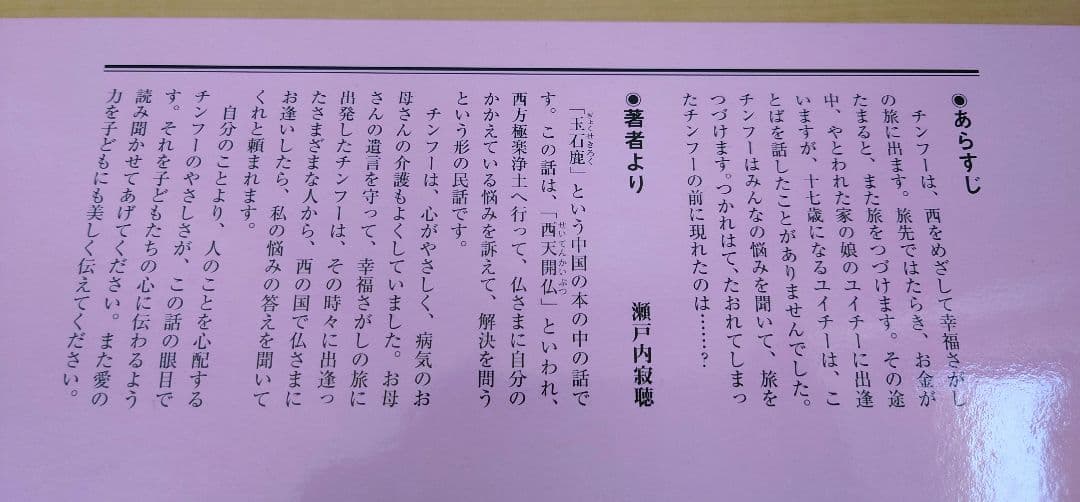 ●あらすじ
チンフーは、西をめざして幸福さがし
の旅に出ます。旅先ではたらき、お金が
たまると、また旅をつづけます。その途
中、やとわれた家の娘のユイチーに出逢
いますが、十七歳になるユイチーは、こ
とばを話したことがありませんでした。
チンフーはみんなの悩みを聞いて、旅を
つづけます。つかれはて、たおれてしまっ
たチンフーの前に現れたのは……?
●著者より
瀬戸内寂聴
「玉石鹿」という中国の本の中の話で
ぎょくせきろく
す。この話は、「西天開仏」といわれ、
せいてんかいぶつ
西方極楽浄土へ行って、仏さまに自分の
かかえている悩みを訴えて、解決を問う
という形の民話です。
チンフーは、心がやさしく、病気のお
母さんの介護もよくしていました。お母
さんの遺言を守って、幸福さがしの旅に
出発したチンフーは、その時々に出逢っ
たさまざまな人から、西の国で仏さまに
お逢いしたら、私の悩みの答えを聞いて
くれと頼まれます。
自分のことより、人のことを心配する
チンフーのやさしさが、この話の眼目で
す。それを子どもたちの心に伝わるよう
読み聞かせてあげてください。また愛の
力を子どもにも美しく伝えてください。